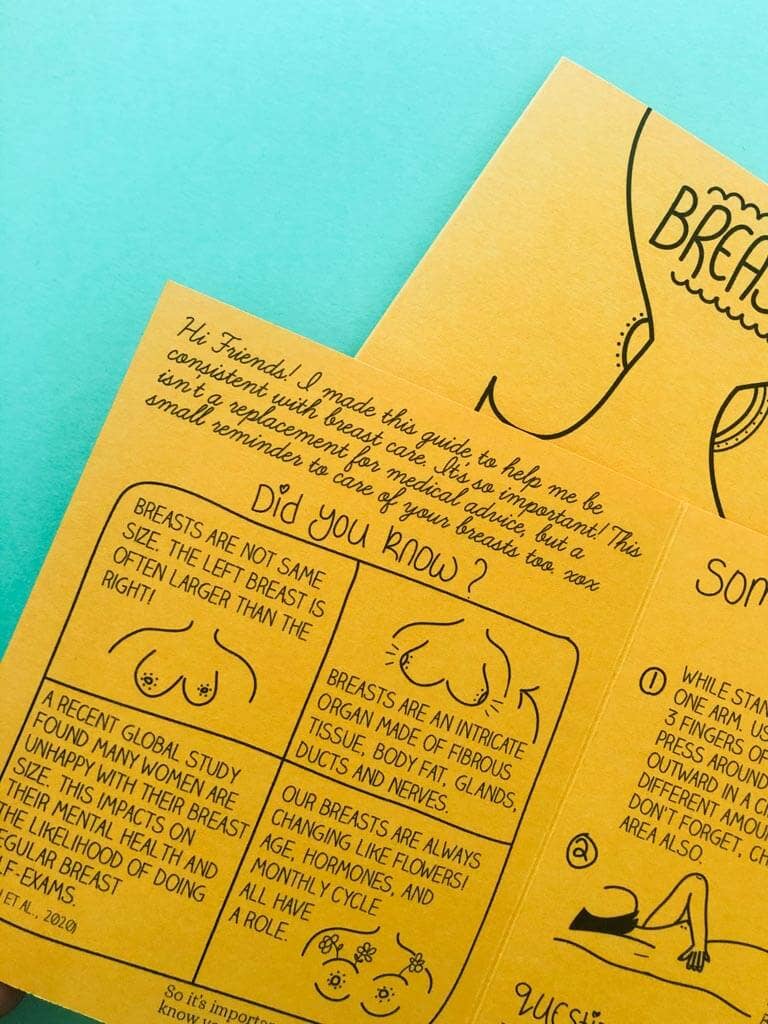 BREAS
Hi Friends! I made this guide to help me be
consistent with breast care. It's so important! This
isn't a replacement for medical advice, but a
small reminder to care of your breasts too. xox
Did you know?
BREASTS ARE NOT SAME
SIZE. THE LEFT BREAST IS
OFTEN LARGER THAN THE
RIGHT!
BREASTS ARE AN INTRICATE
ORGAN MADE OF FIBROUS
TISSUE, BODY FAT, GLANDS,
DUCTS AND NERVES.
A RECENT GLOBAL STUDY
FOUND MANY WOMEN ARE
UNHAPPY WITH THEIR BREAST
SIZE. THIS IMPACTS ON
THEIR MENTAL HEALTH AND
THE LIKELIHOOD OF DOING
EGULAR BREAST
LF-EXAMS.
ET AL., 2020)
OUR BREASTS ARE ALWAYS
CHANGING LIKE FLOWERS!
AGE, HORMONES, AND
MONTHLY CYCLE
ALL HAVE
A ROLE.
So it's importan
know yo
Som
1 WHILE STAN
ONE ARM. US
3 FINGERS OF
PRESS AROUND
OUTWARD IN A CI
DIFFERENT AMOU
DON'T FORGET, CH
AREA ALSO.
2
QUESTi